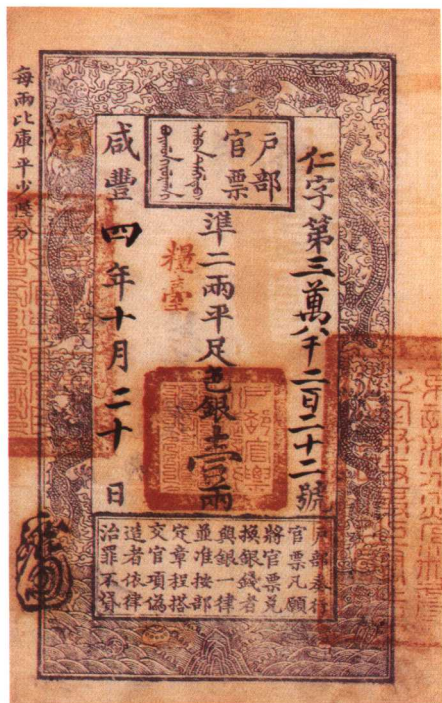 戶部
官票
仁字第三萬八千二百二十二號
準二兩平足色銀壹兩
糧臺
咸豐四年十月二十日
戶部奉行
官票凡願
將官票兌
換銀錢者
與銀一律
並准按部
定章程搭
交官項偽
造者依律
治罪不貸
每兩比庫平少陸分